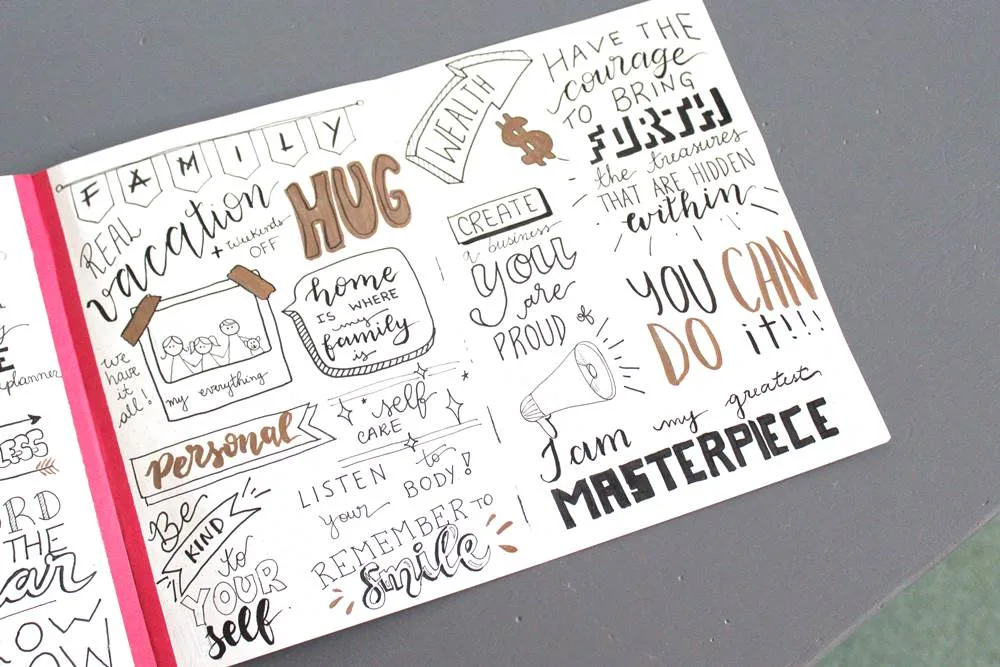 planner
LESS
THE
OW
OW
FAMILY
REAL
vacation
+ weekends
OFF
HUG
we
have
it
all!
my everything
home
IS WHERE
my
family
is
Personal
self
CARE
Be
KIND
to
YOUR
self
LISTEN to
your BODY!
REMEMBER TO
smile
WEALTH
$
HAVE THE
courage
TO BRING
FORTH
the treasures
THAT ARE HIDDEN
within
CREATE
a business
you
are
PROUD of
YOU CAN
DO it!!!
I am my greatest
MASTERPIECE